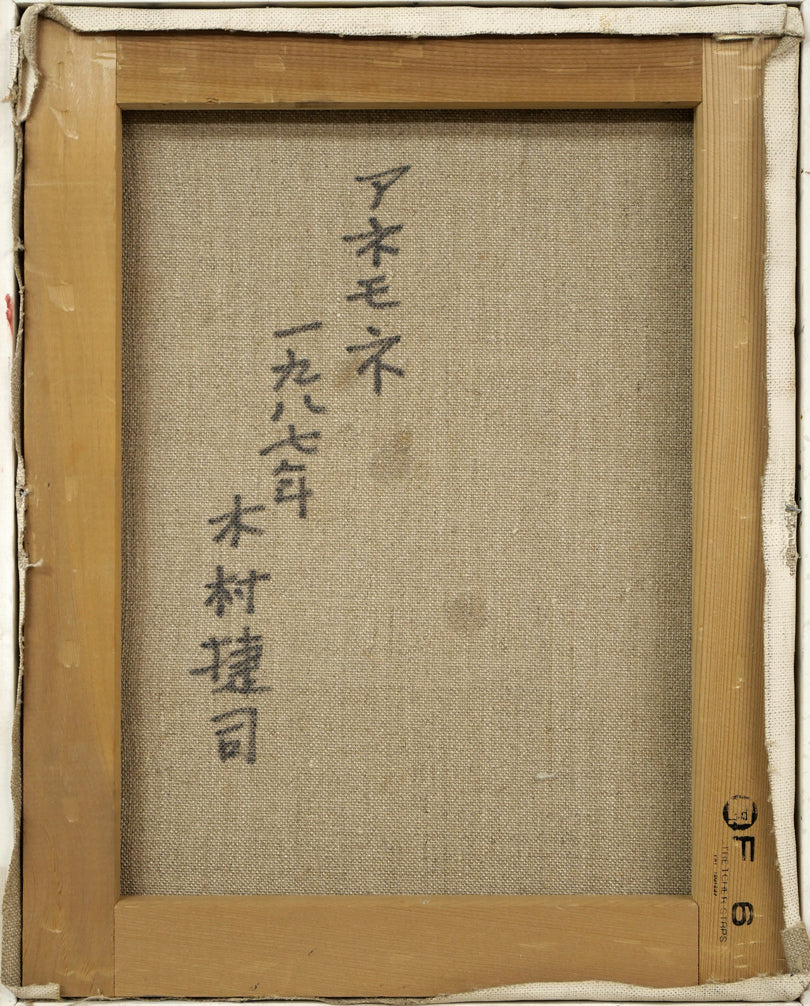 アネモネ
一九八七年
木村捷司
F 6